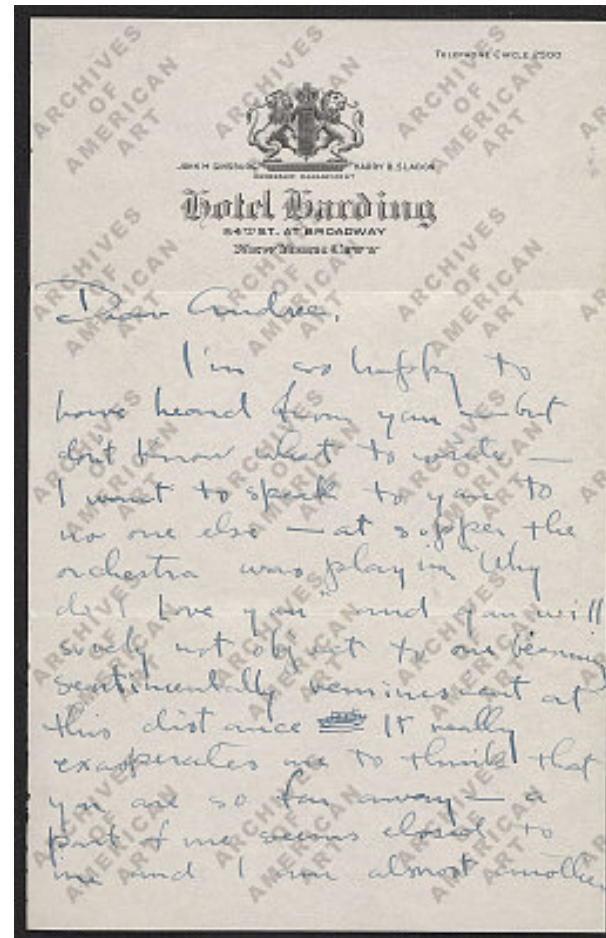 TELEPHONE CIRCLE 2500
JOHN M. GINSBURG HARRY B. SLADON
OWNERSHIP MANAGEMENT
Hotel Harding
54TH ST. AT BROADWAY
NEW YORK CITY
Dear Andree,
I'm so happy to
have heard from you — but
don't know what to write —
I want to speak to you to
no one else — at supper the
orchestra was playing "Why
do I love you" and you will
surely not object to my being
sentimentally reminiscent at
this distance It really
exasperates me to think that
you are so far away — a
part of me seems closed to
me and I am almost another
ARCHIVES
OF
AMERICAN
ART